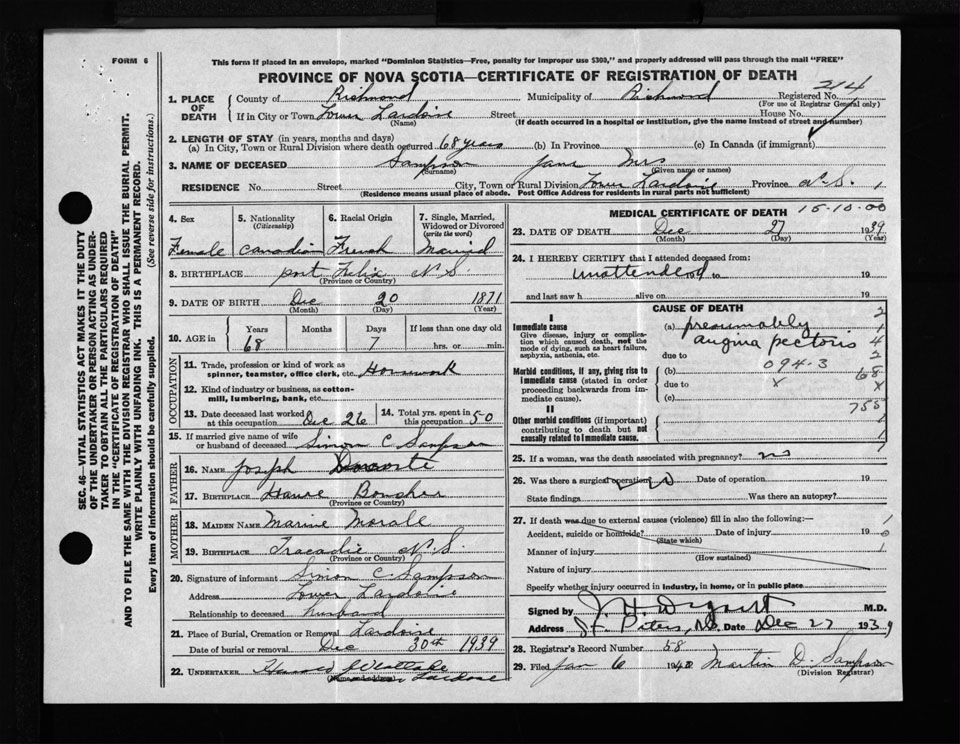 FORM 6
This form if placed in an envelope, marked "Dominion Statistics—Free, penalty for improper use $300," and properly addressed will pass through the mail "FREE"
PROVINCE OF NOVA SCOTIA—CERTIFICATE OF REGISTRATION OF DEATH
214
1. PLACE OF DEATH
County of Richmond Municipality of Richmond Registered No.
(For use of Registrar General only)
If in City or Town Lower Lardoise Street House No.
(Name) (If death occurred in a hospital or institution, give the name instead of street and number)
2. LENGTH OF STAY (in years, months and days)
(a) In City, Town or Rural Division where death occurred 68 years (b) In Province (c) In Canada (if immigrant)
3. NAME OF DECEASED Sampson Jane Mrs
(Surname) (Given name or names)
RESIDENCE No. Street City, Town or Rural Division Lower Lardoise Province N.S. 1
(Residence means usual place of abode. Post Office Address for residents in rural parts not sufficient)
SEC. 46—VITAL STATISTICS ACT MAKES IT THE DUTY
OF THE UNDERTAKER OR PERSON ACTING AS UNDER-
TAKER TO OBTAIN ALL THE PARTICULARS REQUIRED
IN THE "CERTIFICATE OF REGISTRATION OF DEATH"
AND TO FILE THE SAME WITH THE DIVISION REGISTRAR WHO SHALL ISSUE THE BURIAL PERMIT.
WRITE PLAINLY WITH UNFADING INK. THIS IS A PERMANENT RECORD.
Every item of information should be carefully supplied. (See reverse side for instructions.)
4. Sex 5. Nationality (Citizenship) 6. Racial Origin 7. Single, Married, Widowed or Divorced (write the word)
Female Canadian French Married
8. BIRTHPLACE port Felix N.S.
(Province or Country)
9. DATE OF BIRTH Dec 20 1871
(Month) (Day) (Year)
10. AGE in Years Months Days If less than one day old
68 7 hrs. or min.
OCCUPATION
11. Trade, profession or kind of work as spinner, teamster, office clerk, etc. Housework
12. Kind of industry or business, as cotton-mill, lumbering, bank, etc.
13. Date deceased last worked at this occupation Dec 26 14. Total yrs. spent in 50
15. If married give name of wife or husband of deceased Simon C. Sampson
FATHER
16. NAME Joseph
17. BIRTHPLACE Boucher
(Province or Country)
MOTHER
18. MAIDEN NAME
19. BIRTHPLACE Tracadie N.S.
(Province or Country)
20. Signature of informant Simon C. Sampson
Address Lower Lardoise
Relationship to deceased husband
21. Place of Burial, Cremation or Removal Lardoise
Date of burial or removal Dec 30th 1939
22. UNDERTAKER
Lardoise
MEDICAL CERTIFICATE OF DEATH 15-10-00
23. DATE OF DEATH Dec 27 1939
(Month) (Day) (Year)
24. I HEREBY CERTIFY that I attended deceased from:
unattended to 19
and last saw h alive on 19
CAUSE OF DEATH
I
Immediate cause
Give disease, injury or complication which caused death, not the mode of dying, such as heart failure, asphyxia, asthenia, etc.
(a) presumably
angina pectoris
due to
Morbid conditions, if any, giving rise to immediate cause (stated in order proceeding backwards from immediate cause).
(b) 094.3
due to x
(c)
2
1
4
2
68
x
755
II
Other morbid conditions (if important) contributing to death but not causally related to immediate cause.
25. If a woman, was the death associated with pregnancy? no
26. Was there a surgical operation? No Date of operation 19
State findings Was there an autopsy?
27. If death was due to external causes (violence) fill in also the following:—
Accident, suicide or homicide? Date of injury 19
(State which)
Manner of injury
(How sustained)
Nature of injury
Specify whether injury occurred in industry, in home, or in public place
Signed by M.D.
Address St. Peters, N.S. Date Dec 27 1939
28. Registrar's Record Number 58
29. Filed Jan 6 1940 Martin D. Sampson
(Division Registrar)